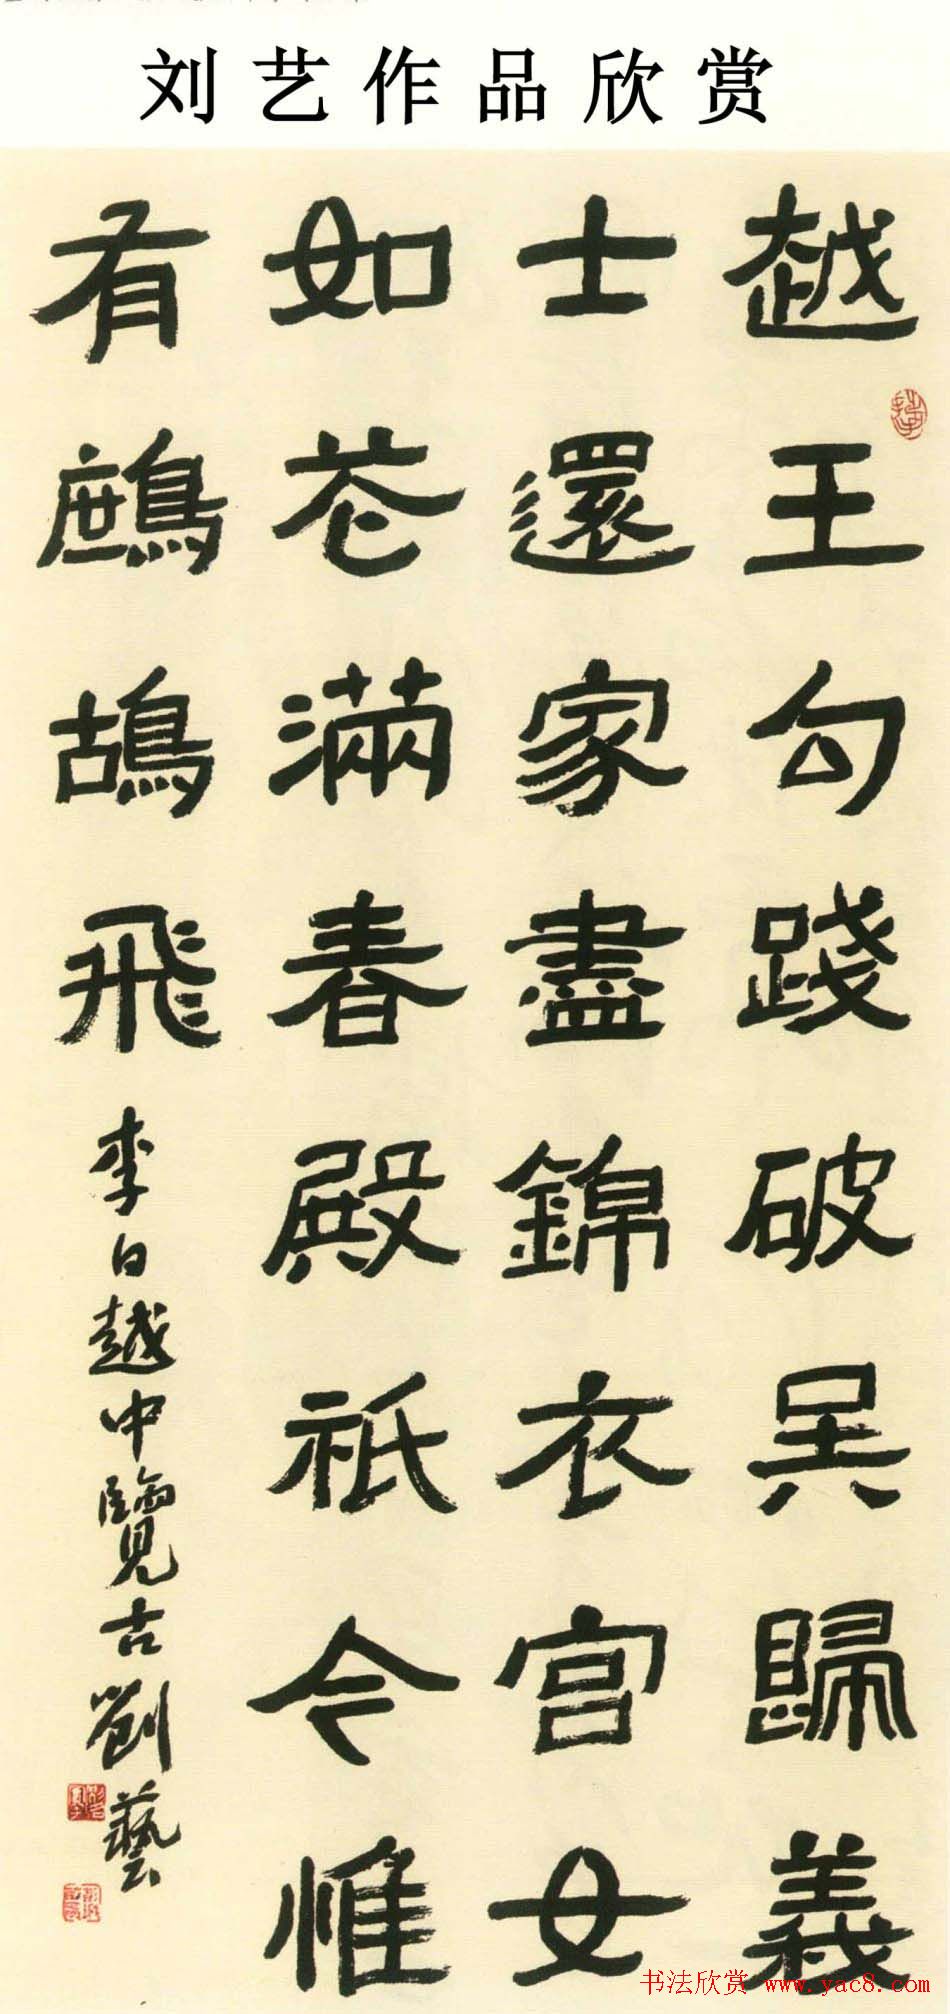 刘艺作品欣赏
越王句踐破吴歸義
士還家盡錦衣宫女
如花滿春殿祇今惟
有鷓鴣飛
李白越中覽古劉藝
书法欣赏 www.yac8.com